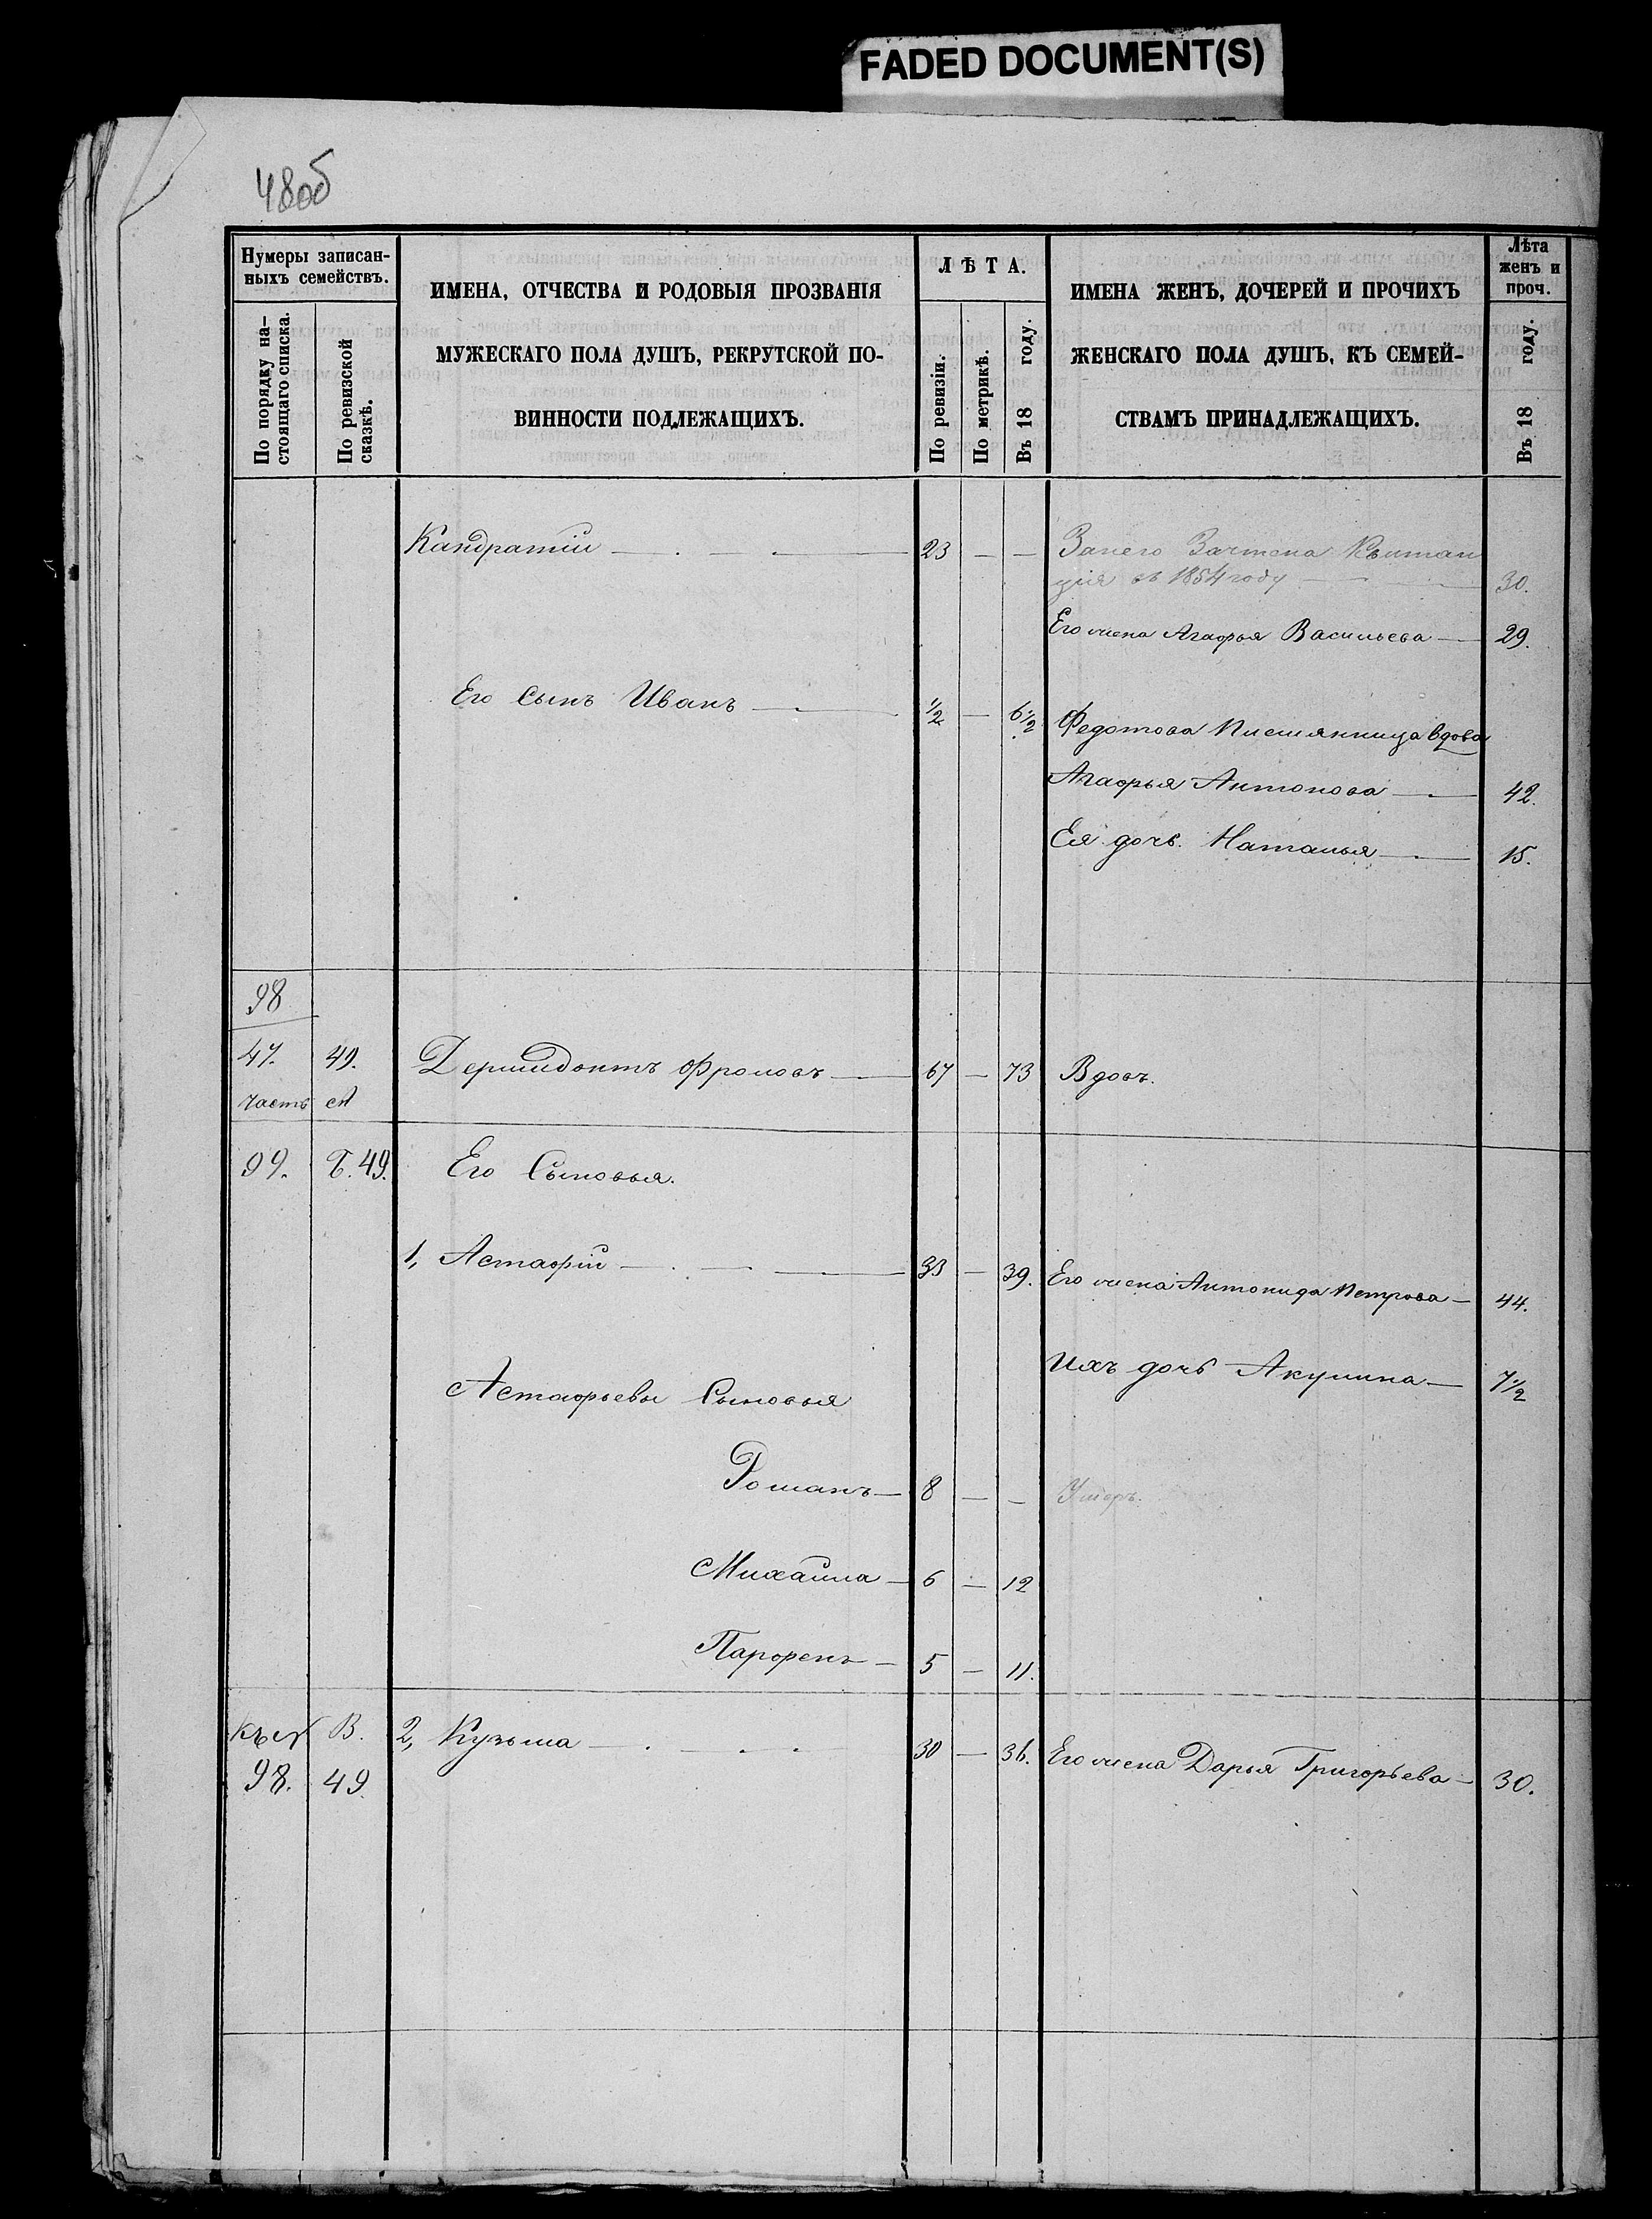 FADED DOCUMENT(S)
48об
Нумеры записан-
ныхъ семействъ.
По порядку на-
стоящаго списка.
По ревизской
сказкѣ.
ИМЕНА, ОТЧЕСТВА И РОДОВЫЯ ПРОЗВАНІЯ
МУЖЕСКАГО ПОЛА ДУШЪ, РЕКРУТСКОЙ ПО-
ВИННОСТИ ПОДЛЕЖАЩИХЪ.
ЛѢТА.
По ревизіи.
По метрикѣ.
Въ 18 году.
ИМЕНА ЖЕНЪ, ДОЧЕРЕЙ И ПРОЧИХЪ
ЖЕНСКАГО ПОЛА ДУШЪ, КЪ СЕМЕЙ-
СТВАМЪ ПРИНАДЛЕЖАЩИХЪ.
Лѣта
женъ и
проч.
Въ 18 году.
Кандратіи — 23 — — Занего Зачтена Квитан
ція въ 1854 году — 30.
Его жена Агафья Васильева — 29.
Его Сынъ Иванъ — 1/2 — 6 1/2 Федотова вдова
Агафья Антонова — 42.
Ея дочь Наталья — 15.
98
47. 49. Дермидонтъ Фроловъ — 67 — 73 Вдовъ.
часть
99. Б. 49. Его Сыновья.
1, Астафіи — 33 — 39. Его жена Антонида Петрова — 44.
Ихъ дочь Акулина — 7 1/2
Астафьевы Сыновья
Романъ — 8 — — Умеръ.
Михаила — 6 — 12
Парфенъ — 5 — 11.
къ № В. 2, Кузьма — 30 — 36. Его жена Дарья Григорьева — 30.
98. 49.